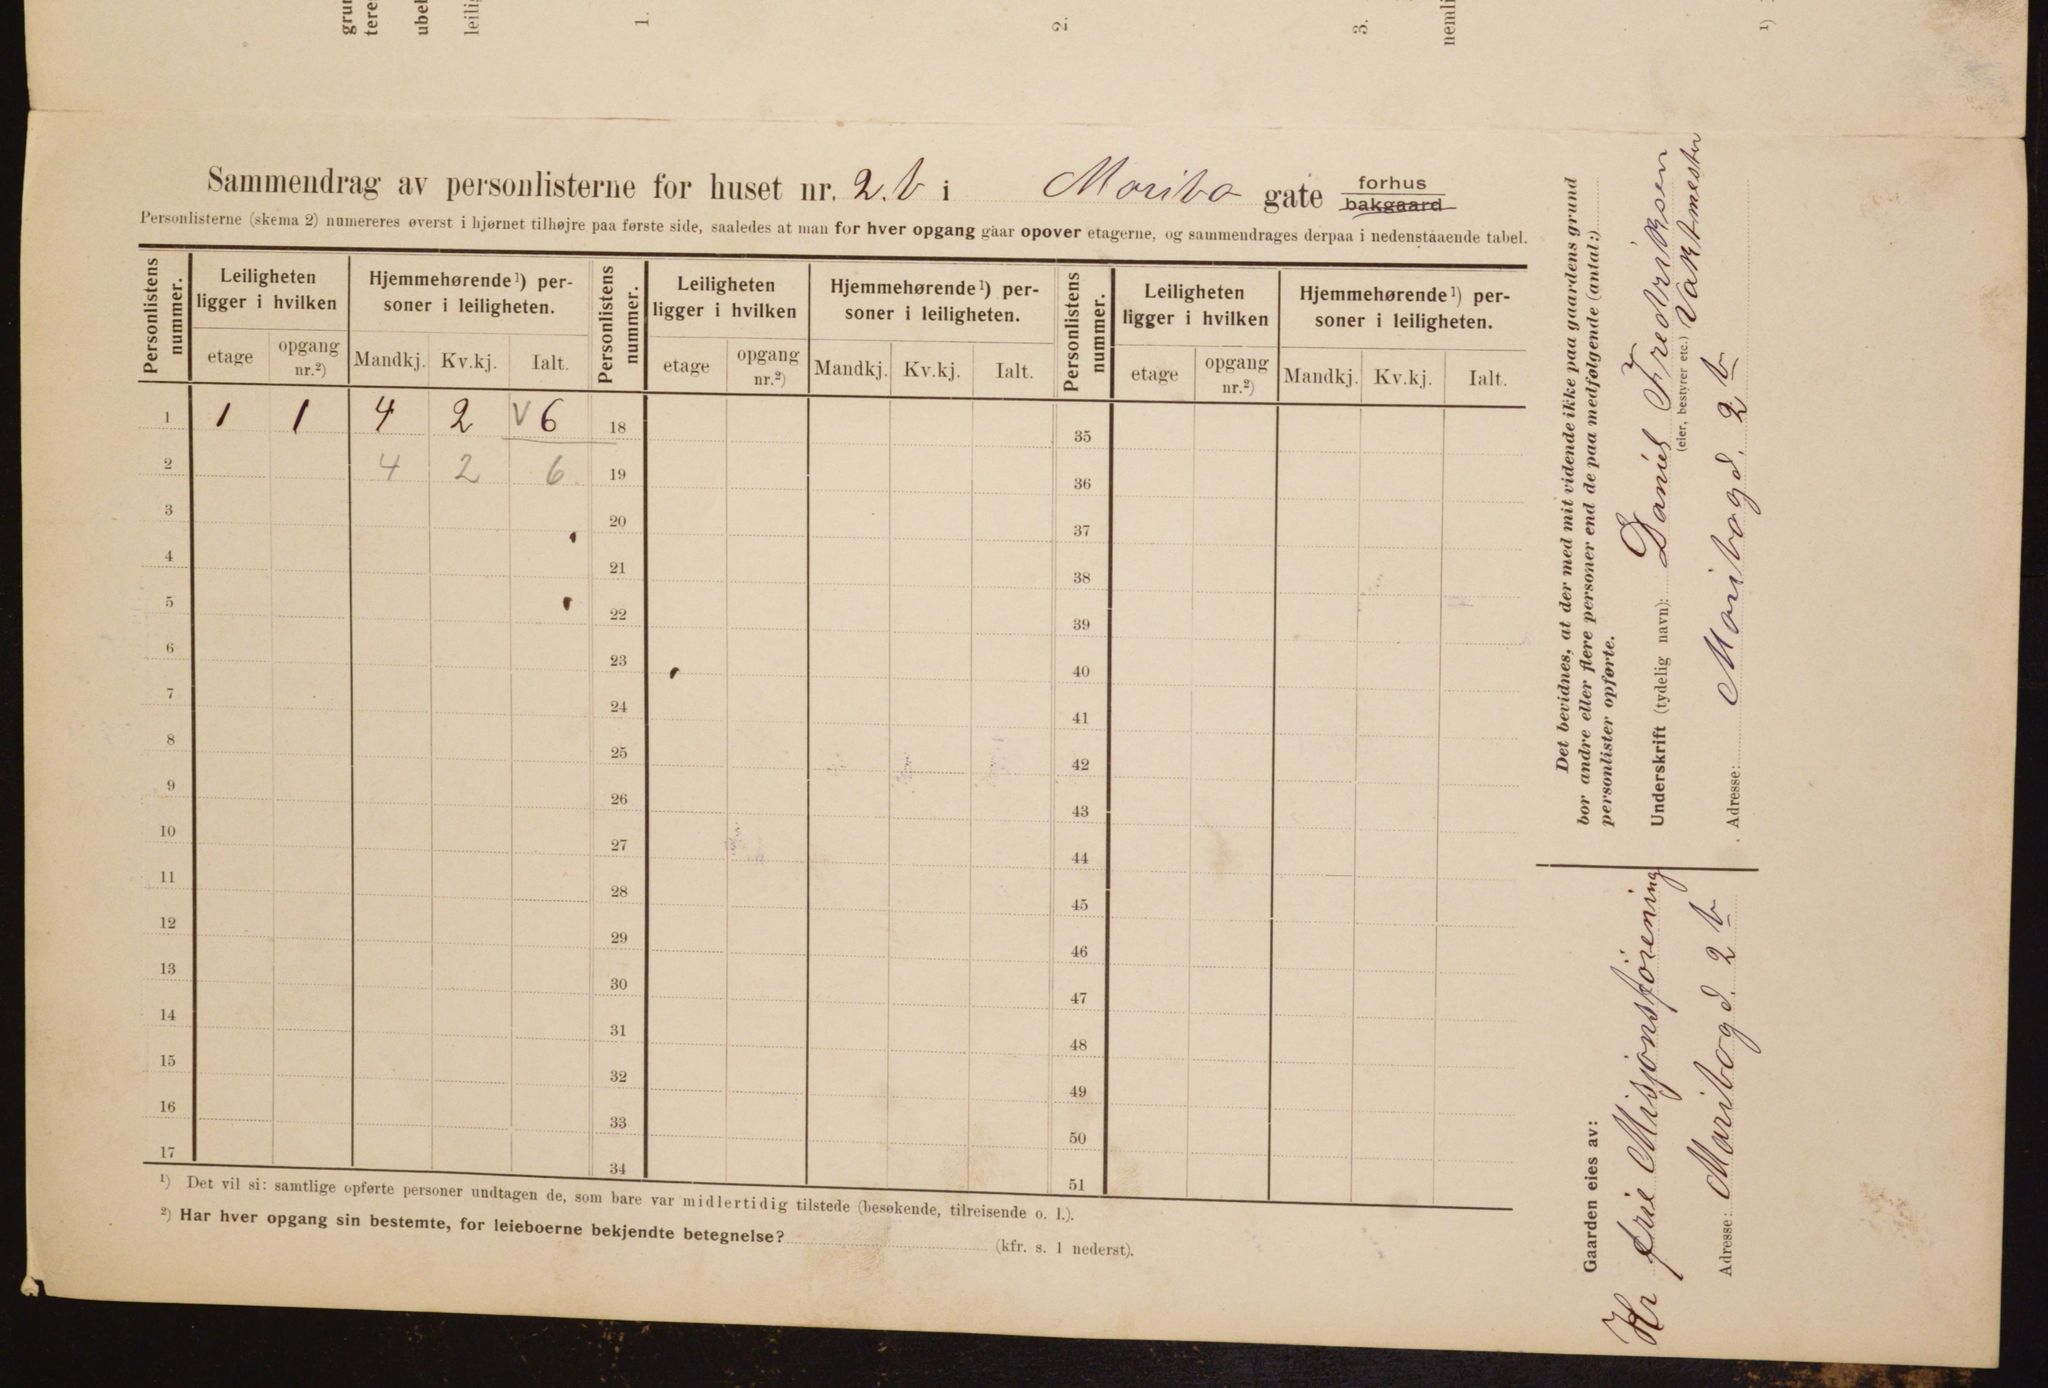 grun
tere
ubel
leilig
1.
2.
3.
nemli
1)
Sammendrag av personlisterne for huset nr. 2.b i Maribo gate forhus bakgaard
Personlisterne (skema 2) numereres øverst i hjørnet tilhøjre paa første side, saaledes at man for hver opgang gaar opover etagerne, og sammendrages derpaa i nedenstaaende tabel.
Personlistens nummer. Leiligheten ligger i hvilken Hjemmehørende¹) personer i leiligheten. Personlistens nummer. Leiligheten ligger i hvilken Hjemmehørende¹) personer i leiligheten. Personlistens nummer. Leiligheten ligger i hvilken Hjemmehørende¹) personer i leiligheten.
etage opgang nr.²) Mandkj. Kv.kj. Ialt. etage opgang nr.²) Mandkj. Kv.kj. Ialt. etage opgang nr.²) Mandkj. Kv.kj. Ialt.
1 1 1 4 2 V 6 18 35
2 4 2 6 19 36
3 20 37
4 21 38
5 22 39
6 23 40
7 24 41
8 25 42
9 26 43
10 27 44
11 28 45
12 29 46
13 30 47
14 31 48
15 32 49
16 33 50
17 34 51
¹) Det vil si: samtlige opførte personer undtagen de, som bare var midlertidig tilstede (besøkende, tilreisende o. l.).
²) Har hver opgang sin bestemte, for leieboerne bekjendte betegnelse? (kfr. s. 1 nederst).
Det bevidnes, at der med mit vidende ikke paa gaardens grund
bor andre eller flere personer end de paa medfølgende (antal:)
personlister opførte.
Underskrift (tydelig navn): Daniel Fredriksen
(eier, bestyrer etc.) Vaktmester
Adresse: Maribogd. 2 b
Gaarden eies av:
Kr frie Misjonsforening
Adresse: Maribogd. 2 b